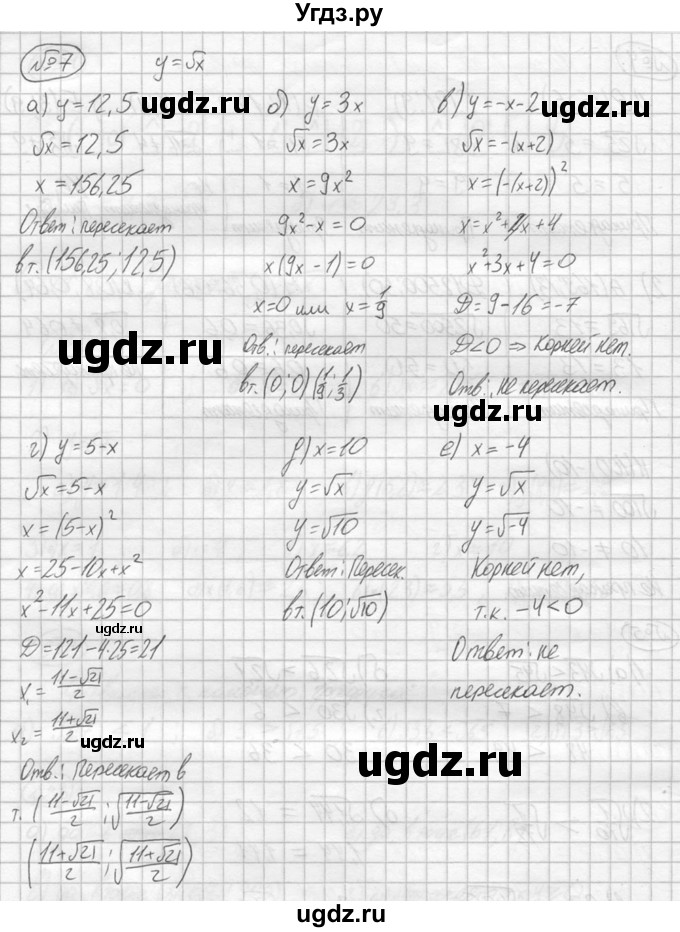 Угдз.ру
№7 y=√x
а) y=12,5
√x=12,5
x=156,25
Ответ: пересекает
в т. (156,25; 12,5)
б) y=3x
√x=3x
x=9x²
9x²-x=0
x(9x-1)=0
x=0 или x=1/9
Отв.: пересекает
в т. (0;0) (1/9; 1/3)
в) y=-x-2
√x=-(x+2)
x=(-(x+2))²
x=x²+4x+4
x²+3x+4=0
D=9-16=-7
D<0 ⇒ Корней нет.
Отв.: не пересекает.
г) y=5-x
√x=5-x
x=(5-x)²
x=25-10x+x²
x²-11x+25=0
D=121-4·25=21
x₁=(11-√21)/2
x₂=(11+√21)/2
Отв.: Пересекает в
т. ((11-√21)/2; √((11-√21)/2))
((11+√21)/2; √((11+√21)/2))
д) x=10
y=√x
y=√10
Ответ: Пересек.
в т. (10; √10)
е) x=-4
y=√x
y=√-4
Корней нет,
т.к. -4<0
Ответ: не
пересекает.
ugdz.ru
ugdz.ru
ugdz.ru
ugdz.ru
ugdz.ru
ugdz.ru
ugdz.ru
ugdz.ru